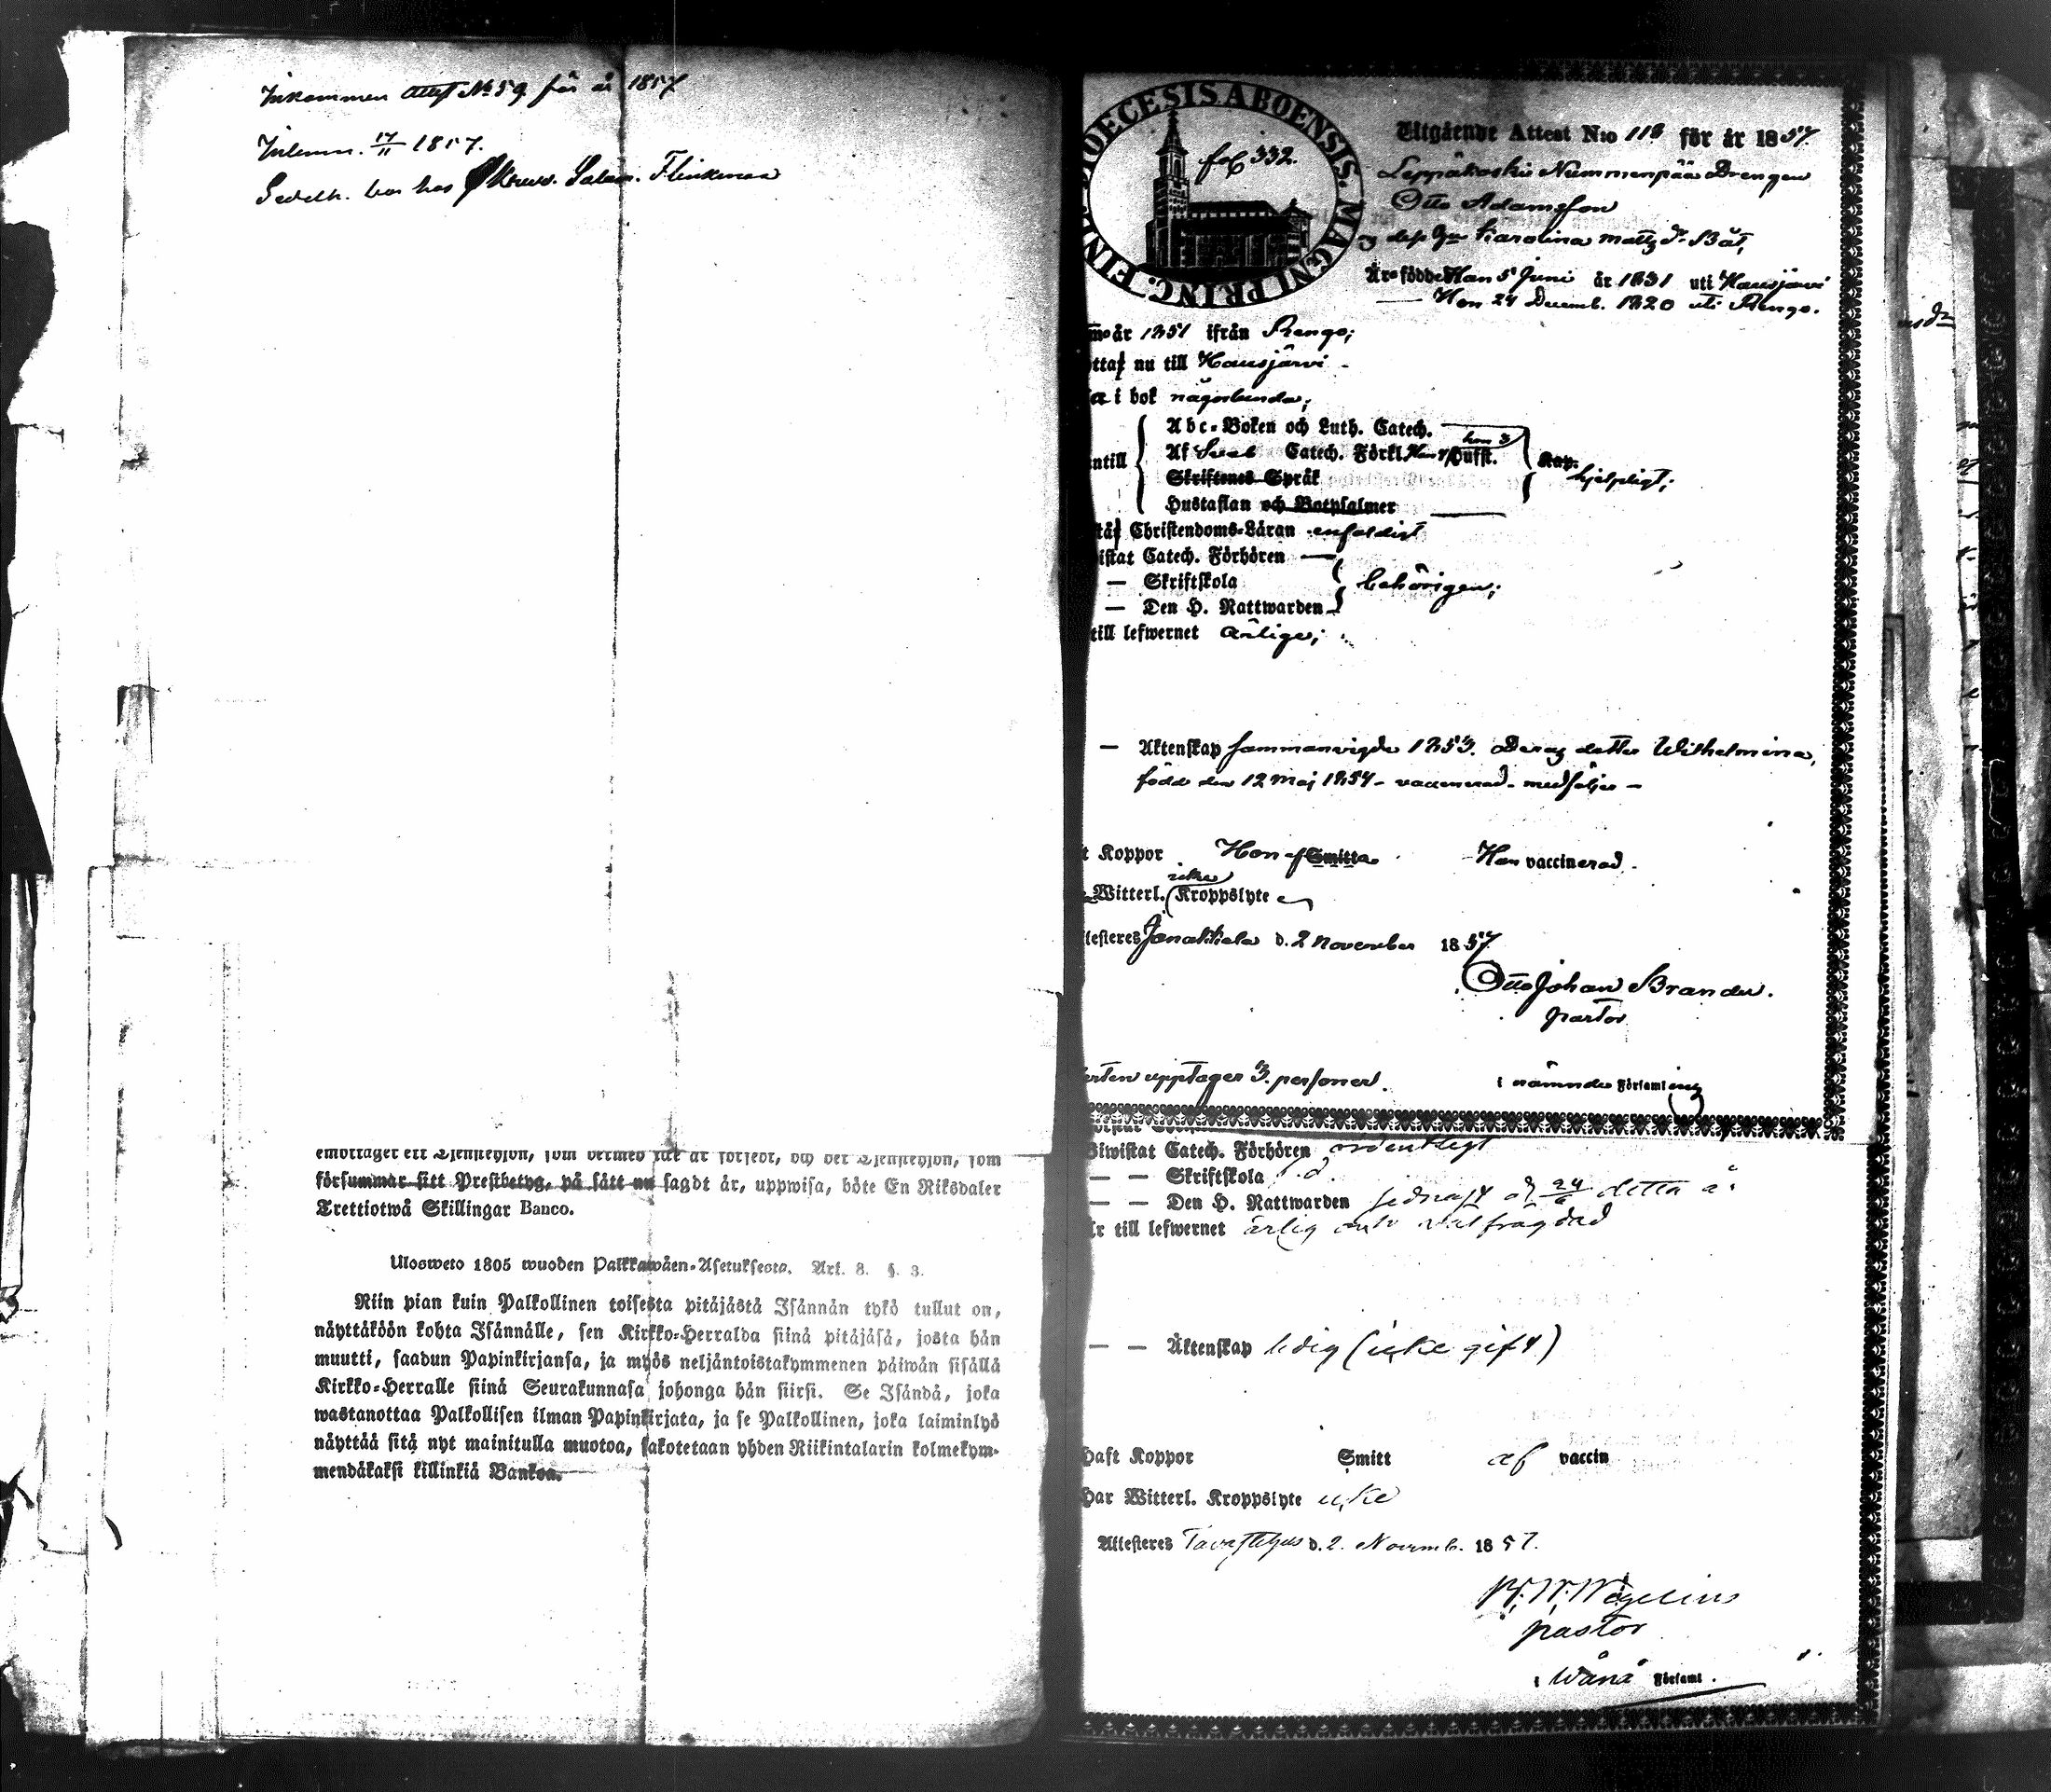 Inkommen Attest No 59 för år 1857
Inlemn. 17/11 1857.
Sedeln. har hos
emottager ett Tjenstehjon, som dermed
försummar sitt Prestbetyg, på sätt nu sagdt är, uppwisa, böte En Riksdaler
Trettiotwå Skillingar Banco.
Ulosweto 1805 wuoden Palkkawäen-Asetuksesta. Art. 8. §. 3.
Niin pian kuin Palkollinen toisesta pitäjästä Isännän tykö tullut on,
näyttäköön kohta Isännälle, sen Kirkko-Herralda siinä pitäjäsä, josta hän
muutti, saadun Papinkirjansa, ja myös neljäntoistakymmenen päiwän sisällä
Kirkko-Herralle siinä Seurakunnasa johonga hän siirsi. Se Isändä, joka
wastanottaa Palkollisen ilman Papinkirjata, ja se Palkollinen, joka laiminlyö
näyttää sitä nyt mainitulla muotoa, sakotetaan yhden Riikintalarin kolmekym-
mendäkaksi killinkiä Bankoa.
DIOECESIS ABOENSIS. MAGNI PRINC. FINL.
fol 332.
Utgående Attest N:o 118 för år 1857.
Leppäkoski Nummenpää Drengen
Otto Adamsson
Karolina Matts dr
Äro födde Han 5 Juni år 1831 uti Hausjärvi
— Hon 24 Decemb. 1820 uti Rengo.
år 1851 ifrån Rengo;
nu till Hausjärvi -
i bok någorlunda;
Abc-Boken och Luth. Catech.
Af Sveb Catech. Förkl. Han Hufst. hon 3
Skriftenes Språk
hjelpligt;
Hustaflan och Botpsalmer
Christendoms-Läran enfaldigt
Catech. Förhören —
— Skriftskola behörigen;
— Den H. Nattwarden
till lefwernet ärlige;
— Äktenskap sammanvigde 1853. Deras dotter Wilhelmina,
född den 12 Maj 1854 - vaccinerad - medföljer -
Koppor Hon af Smitta Han vaccinerad.
Witterl. Kroppslyte icke
Janakkala d. 2 November 1857
Otto Johan Brander.
pastor
upptager 3. personer. i nämnde Församling
Biwistat Catech. Förhören ordentligt
— — Skriftskola d:o
— — Den H. Nattwarden sednast d 24/6 detta år
Är till lefwernet ärlig och välfrägdad
— — Äktenskap ledig (icke gift)
Haft Koppor Smitt af vaccin
Har Witterl. Kroppslyte icke
Attesteres Tavastehus d. 2. Novemb. 1857.
pastor
i Wånå Församl.